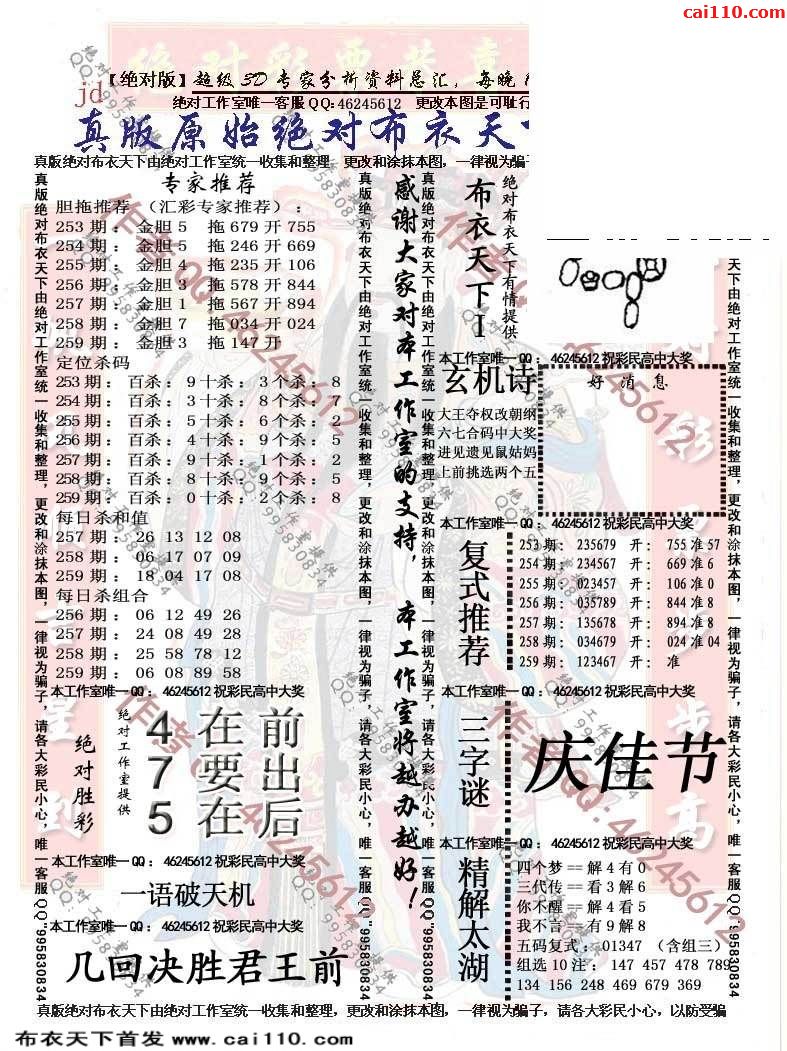 cai110.com
绝对彩票共享
jd
【绝对版】超级3D专家分析资料总汇，每晚
绝对工作室唯一客服QQ:46245612 更改本图是可耻行
真版原始绝对布衣天
真版绝对布衣天下由绝对工作室统一收集和整理，更改和涂抹本图，一律视为骗
专家推荐
胆拖推荐 （汇彩专家推荐）：
253期： 金胆5 拖679开755
254期： 金胆5 拖246开669
255期： 金胆4 拖235开106
256期： 金胆3 拖578开844
257期： 金胆1 拖567开894
258期： 金胆7 拖034开024
259期： 金胆3 拖147开
定位杀码
253期： 百杀：9十杀：3个杀：8
254期： 百杀：3十杀：8个杀：7
255期： 百杀：5十杀：6个杀：2
256期： 百杀：4十杀：9个杀：5
257期： 百杀：9十杀：1个杀：2
258期： 百杀：8十杀：9个杀：5
259期： 百杀：0十杀：2个杀：8
每日杀和值
257期： 26 13 12 08
258期： 06 17 07 09
259期： 18 04 17 08
每日杀组合
256期： 06 12 49 26
257期： 24 08 49 28
258期： 25 58 78 12
259期： 06 08 89 58
本工作室唯一QQ：46245612祝彩民高中大奖
绝对胜彩
绝对工作室提供
4在前
7要出
5在后
本工作室唯一QQ：46245612祝彩民高中大奖
一语破天机
本工作室唯一QQ：46245612祝彩民高中大奖
几回决胜君王前
真版绝对布衣天下由绝对工作室统一收集和整理，更改和涂抹本图，一律视为骗子，请各大彩民小心，唯一客服QQ"995830834
真版绝对布衣天下由绝对工作室统一收集和整理，更改和涂抹本图，一律视为骗子，请各大彩民小心，唯一客服QQ"995830834
感谢大家对本工作室的支持，本工作室将越办越好！
真版绝对布衣天下由绝对工作室统一收集和整理，更改和涂抹本图，一律视为骗子，请各大彩民小心，唯一客服QQ"995830834
布衣天下I
绝对布衣天下有情提供
本工作室唯一QQ：46245612祝彩民高中大奖
玄机诗
大王夺权改朝纲
六七合码中大奖
进见遗见鼠姑妈
上前挑选两个五
好消息
本工作室唯一QQ：46245612祝彩民高中大奖
复式推荐
253期： 235679 开： 755准57
254期： 234567 开： 669准6
255期： 023457 开： 106准0
256期： 035789 开： 844准8
257期： 135678 开： 894准8
258期： 034679 开： 024准04
259期： 123467 开： 准
本工作室唯一QQ：46245612祝彩民高中大奖
三字谜
庆佳节
本工作室唯一QQ：46245612祝彩民高中大奖
精解太湖
四个梦==解4有0
三代传==看3解6
你不醒==解4看5
我不言==有9解8
五码复式：01347 （含组三）
组选10注： 147 457 478 789
134 156 248 469 679 369
天下由绝对工作室统一收集和整理，更改和涂抹本图，一律视为骗子，请各大彩民小心，唯一客服QQ"995830834
真版绝对布衣天下由绝对工作室统一收集和整理，更改和涂抹本图，一律视为骗子，请各大彩民小心，以防受骗
布衣天下首发 www.cai110.com
作者QQ:46245612
绝对工作室提供
QQ:995830834